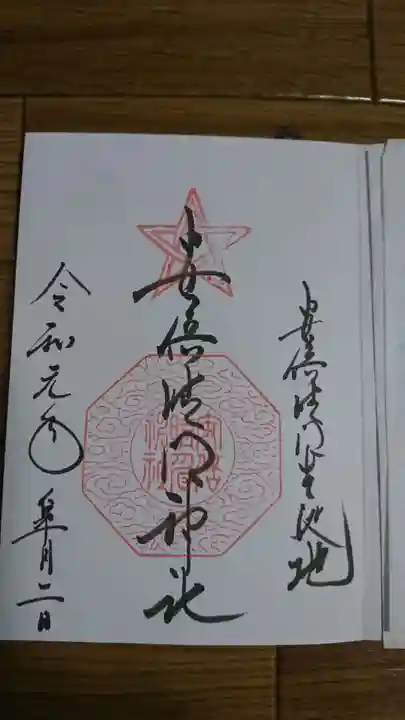 安倍晴明生誕地
安倍晴明神社
令和元年皐月二日